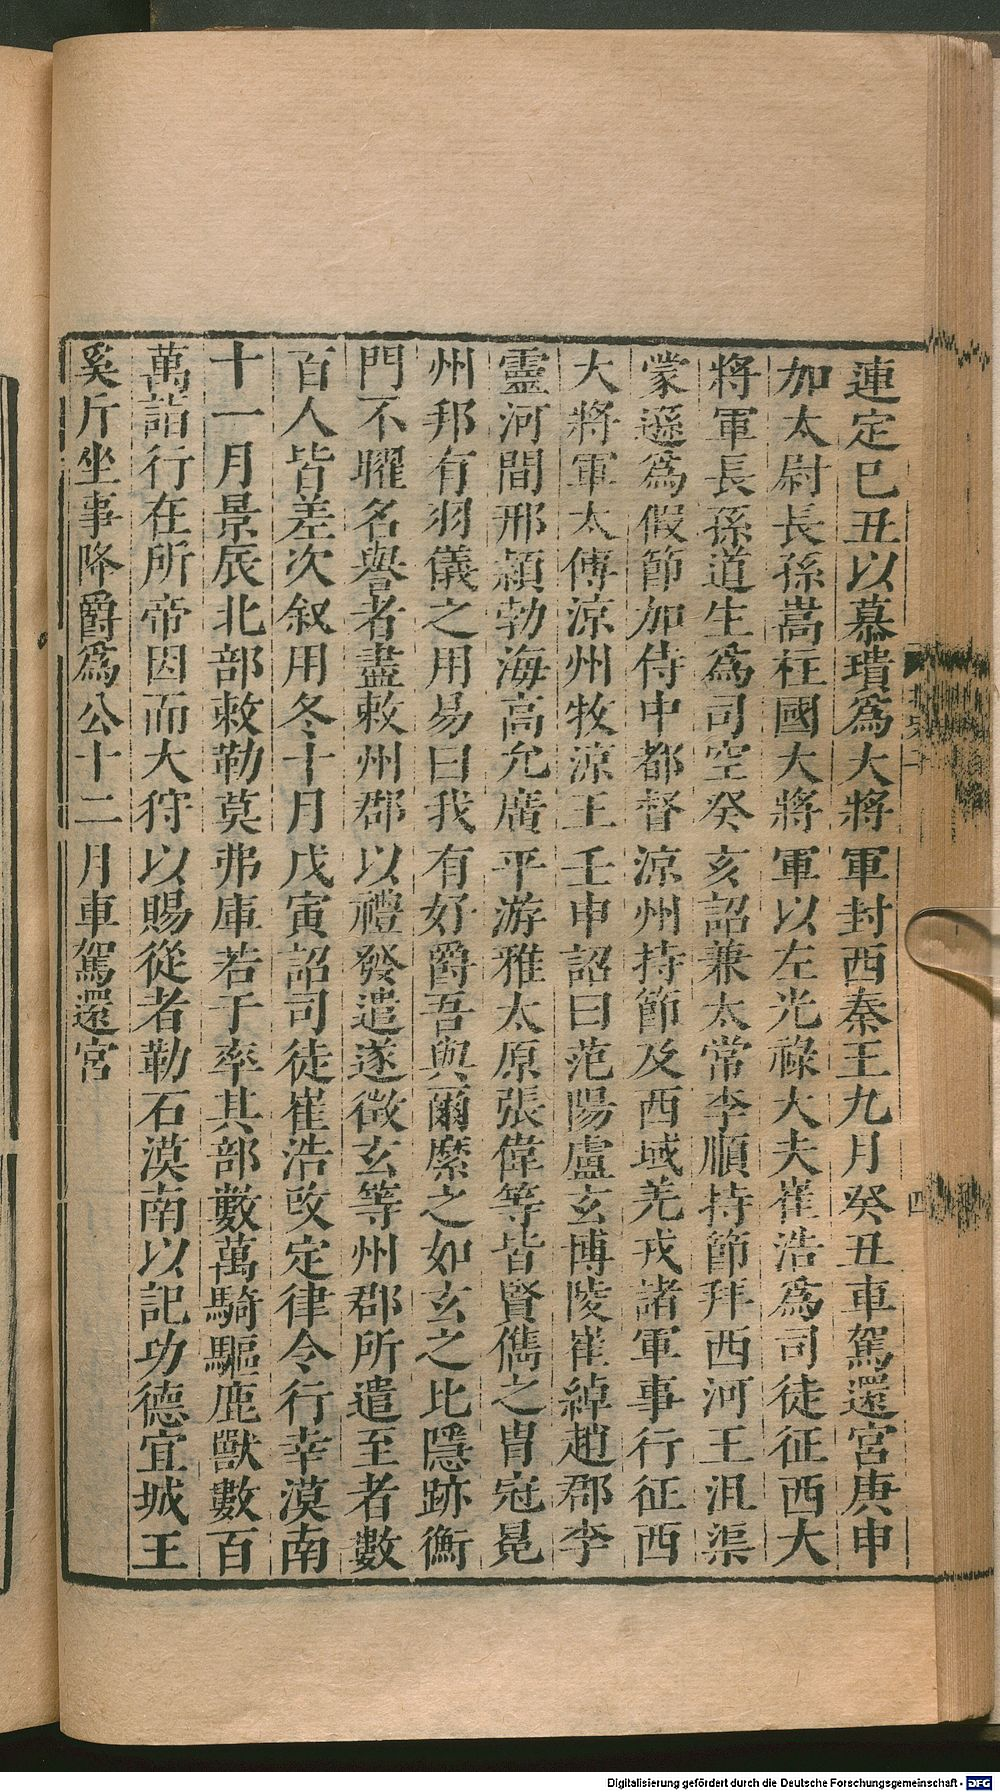 連定巳丑以慕璝爲大將軍封西秦王九月癸丑車駕還宮庚申
加太尉長孫嵩柱國大將軍以左光祿大夫崔浩爲司徒征西大
將軍長孫道生爲司空癸亥詔兼太常李順持節拜西河王沮渠
蒙遜爲假節加侍中都督涼州持節及西域羌戎諸軍事行征西
大將軍太傅涼州牧涼王壬申詔曰范陽盧玄博陵崔綽趙郡李
靈河間邢穎勃海高允廣平游雅太原張偉等皆賢儁之胄冠冕
州邦有羽儀之用易曰我有好爵吾與爾縻之如玄之比隱跡衡
門不曜名譽者盡敕州郡以禮發遣遂徵玄等州郡所遣至者數
百人皆差次叙用冬十月戊寅詔司徒崔浩改定律令行幸漠南
十一月景辰北部敕勒莫弗庫若于率其部數萬騎驅鹿獸數百
萬詣行在所帝因而大狩以賜從者勒石漠南以記功德宜城王
奚斤坐事降爵爲公十二月車駕還宮
四
Digitalisierung gefördert durch die Deutsche Forschungsgemeinschaft - DFG